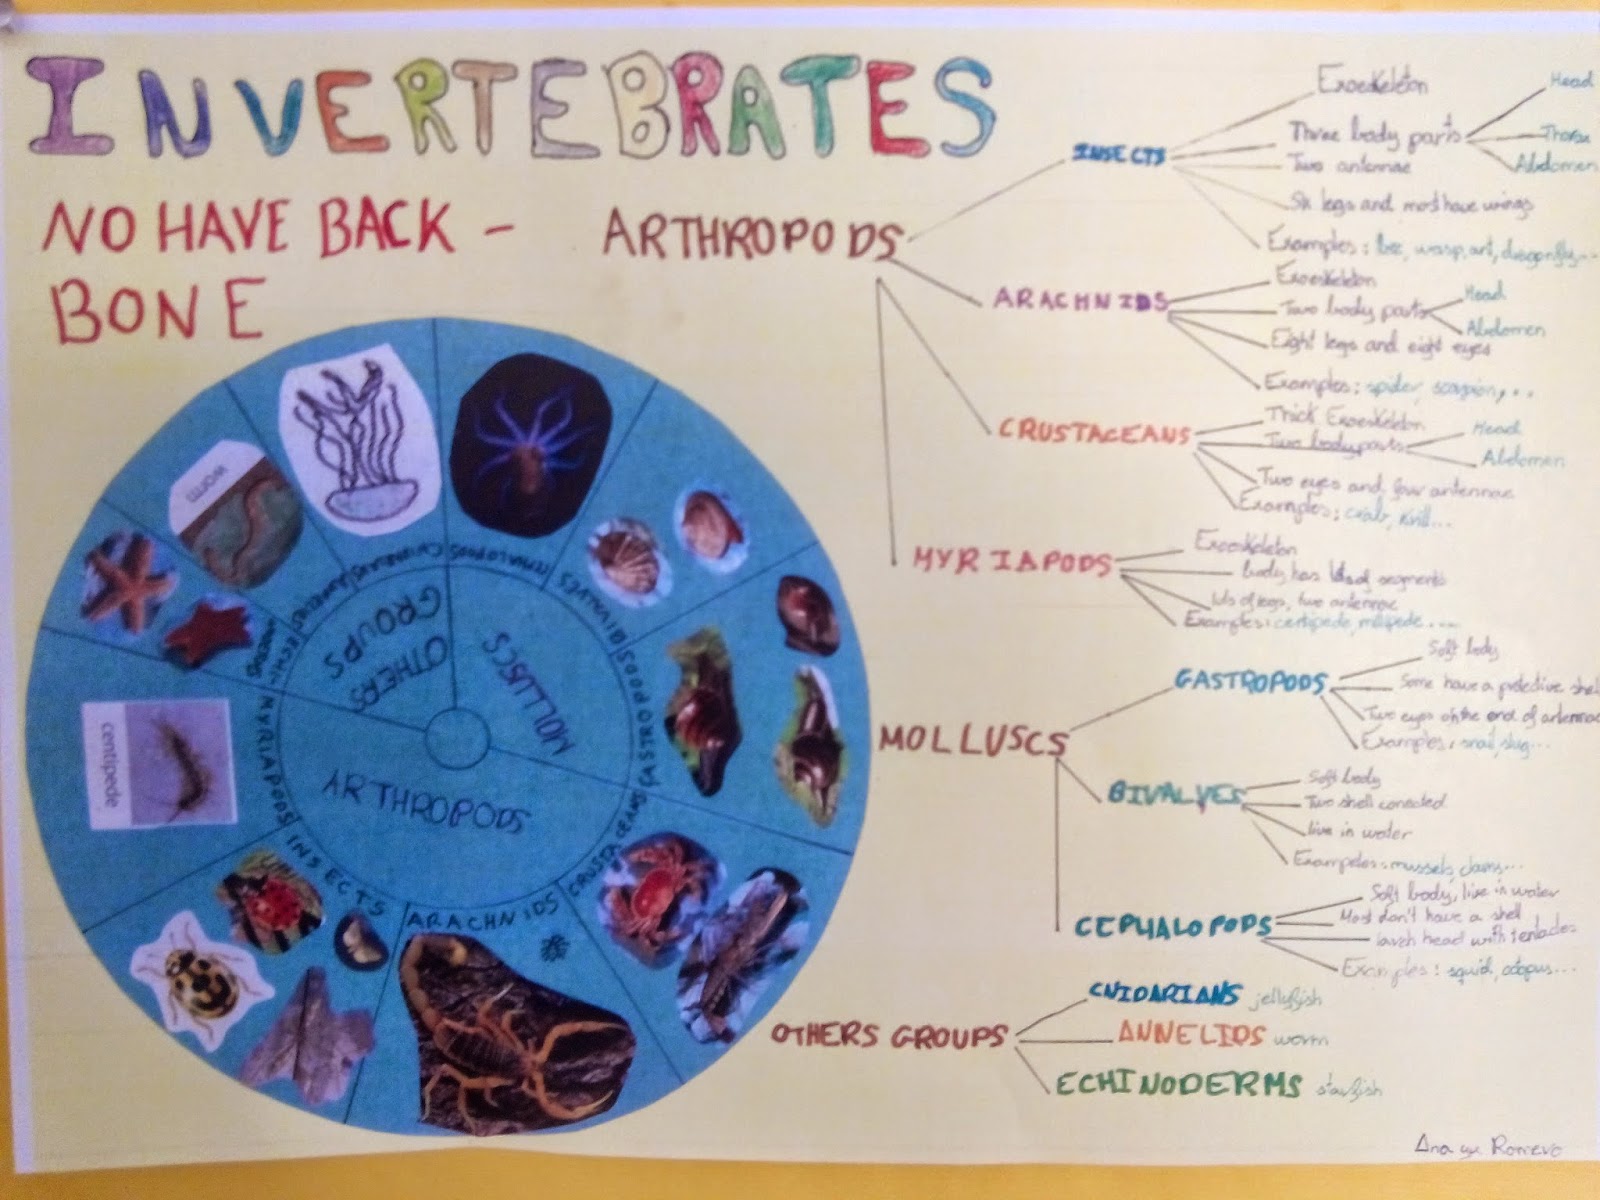 INVERTEBRATES
NO HAVE BACK -
BONE
ARTHROPODS
INSECTS
Exoeskeleton
Three body parts
Head
Thorax
Abdomen
Two antennae
Six legs and most have wings
Examples: bee, wasp, ant, dragonfly...
ARACHNIDS
Exoeskeleton
Two body parts
Head
Abdomen
Eight legs and eight eyes
Examples: spider, scorpion,...
CRUSTACEANS
Thick Exoeskeleton
Two body parts
Head
Abdomen
Two eyes and four antennae
Examples: crab, krill...
MYRIAPODS
Exoeskeleton
body has lots of segments
lots of legs, two antennae
Examples: centipede, millipede....
MOLLUSCS
GASTROPODS
Soft body
Some have a protective shell
Two eyes on the end of antennae
Examples: snail, slug...
BIVALVES
Soft body
Two shell conected
live in water
Examples: mussels, clams...
CEPHALOPODS
Soft body, live in water
Most don't have a shell
head with
Examples: squid, octopus...
OTHERS GROUPS
CNIDARIANS jellyfish
ANNELIDS worm
ECHINODERMS starfish
OTHERS
GROUPS
MOLLUSCS
ARTHROPODS
CNIDARIANS
CEPHALOPODS
BIVALVES
GASTROPODS
CRUSTACEANS
ARACHNIDS
INSECTS
MYRIAPODS
ECHI-
NODERMS
ANNELIDS
worm
centipede
Romero